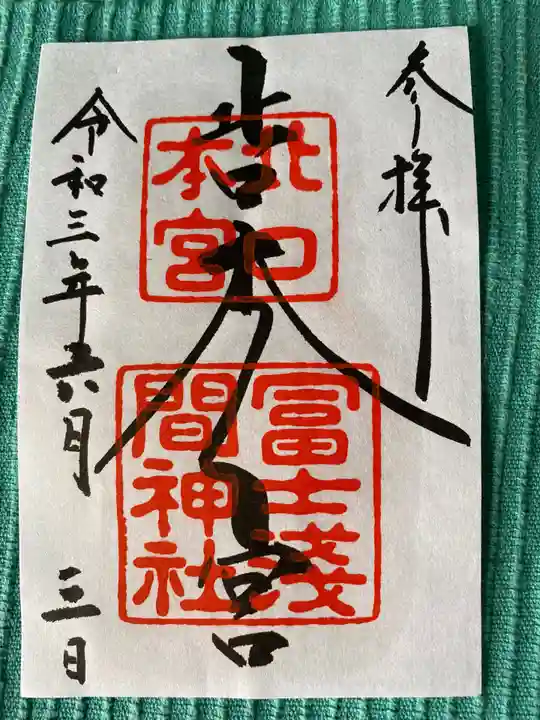 参拝
北口本宮
北口
本宮
冨士淺
間神社
令和三年六月三日